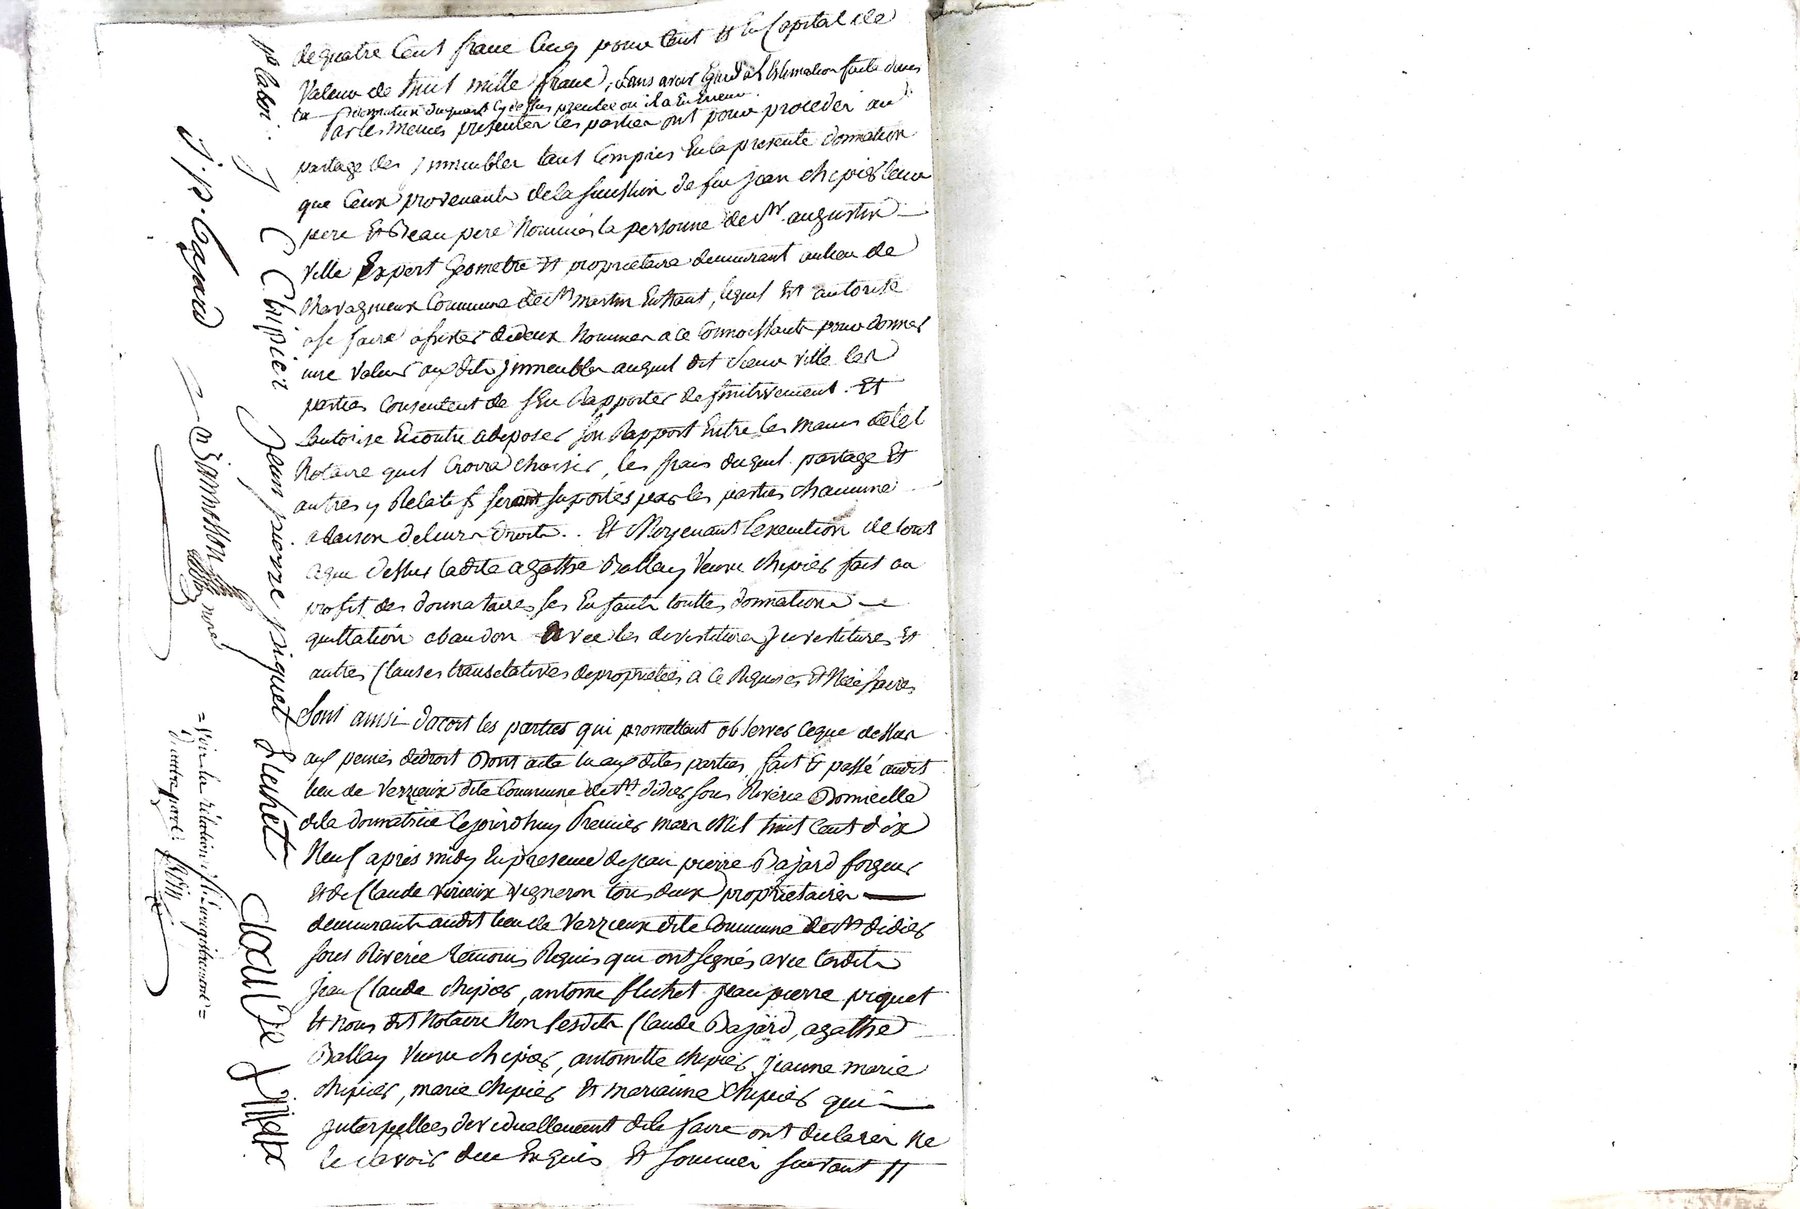 de quatre Cent franc Cinq pour Cent et En Capital de
Valeur de huit mille franc, sans avoir Egard a L'Estimation faite dans
la
Par les memes presentes les parties ont pour proceder au
partage des jmmeubles tant Compris En la presente donnation
que Ceux provenants de la sucession de feu jean chipier leur
pere Et Beau pere Nommés la personne de Sr augustin
ville Expert Geometre Et proprietaire demeurant au lieu de
Chavagnieux Commune de St martin En haut, lequel Est autorisé
a se faire assister de deux Nommes a ce Connoissants pour donner
une valeur auxdits jmmeubles auquel dit Sieur ville les
parties Consentent de s'En Rapporter definitivement. Et
L'autorise Ensuite a deposer son Rapport Entre les mains de tel
Notaire quil Croira choisir, les frais duquel partage Et
autres y Relatifs seront suportés par les parties chacune
a Raison de leurs droits.. Et Moyenant L'execution de tout
ce que dessus ladite agathe Ballay Veuve chipier fait au
profit des donnataires ses Enfants touttes donnations
quittation abandon avec les devestitures jnvestitures Et
autres Clauses translatives de proprietées a ce Requises Et Nécéssaires
Sont ainsi dacort les parties qui promettent observer Ceque dessus
aux peines de droit Dont acte lu aux dites parties fait & passé audit
lieu de Verzieux dite Commune de St didier sous Riverie Domicille
de la donnatrice Cejourdhuy Premier mars Mil huit Cent dix
Neuf après midy En presence de jean pierre Bajard forgeur
et de Claude virieux vigneron tous deux proprietaires
demeurants audit lieu de Verzieux dite Commune de St didier
sous Riverie temoins Requis qui ont signés avec lesdits
jean Claude chipier, antoine fluhet jean pierre piquet
Et nous dit Notaire Non lesdits Claude Bajard, agathe
Ballay Veuve chipier, antoinette chipier, jeanne marie
chipier, marie chipier Et marianne chipier qui
jnterpellees de le faire ont declarer Ne
le Savoir de ce Enquis Et Sommés
J C Chipier Jean pierre piquet fluhet CLAUDE Virieux
J. p. Bajard
nore
= Voir la rélation de l'enregistrement =
d'autre part =